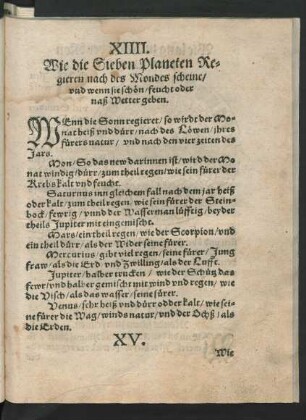 XIIII.
Wie die Sieben Planeten Re-
gieren nach des Mondes scheine/
vnd wenn sie schön/feucht oder
naß Wetter geben.
WEnn die Sonn regieret/so wirdt der Mo-
nat heiß vnd dürr/nach des Löwen/jhres
fürers natur/ vnd nach den vier zeiten des
Jars.
Mon/So das new darinnen ist/wird der Mo-
nat windig/dürr/zum theil regen/wie sein fürer der
Krebs kalt vnd feucht.
Saturnus inn gleichem fall nach dem jar heiß
oder kalt/zum theil regen/wie sein fürer der Stein-
bock/fewrig/vnnd der Wasserman lüfftig/beyder
theils Jupiter mit eingemischt.
Mars/ein theil regen/wie der Scorpion/vnd
ein theil dürr/als der Wider seine fürer.
Mercurius/gibt viel regen/seine fürer/Jung
fraw/als die Erd vnd Zwilling/als der Lufft.
Jupiter/halber trucken/ wie der Schütz das
fewr/vnd halber gemischt mit wind vnd regen/ wie
die Visch/als das wasser/seine fürer.
Venus/sehr heiß vnd dürr odder kalt/wie sei-
ne fürer die Wag/winds natur/vnd der Ochß/als
die Erden.
XV.
Wie